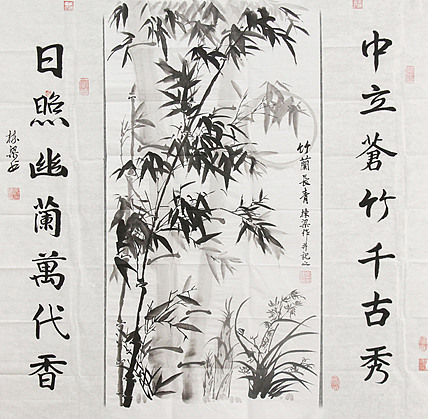 中立蒼竹千古秀
竹蘭長青 棟梁作并記之
日照幽蘭萬代香
棟梁書